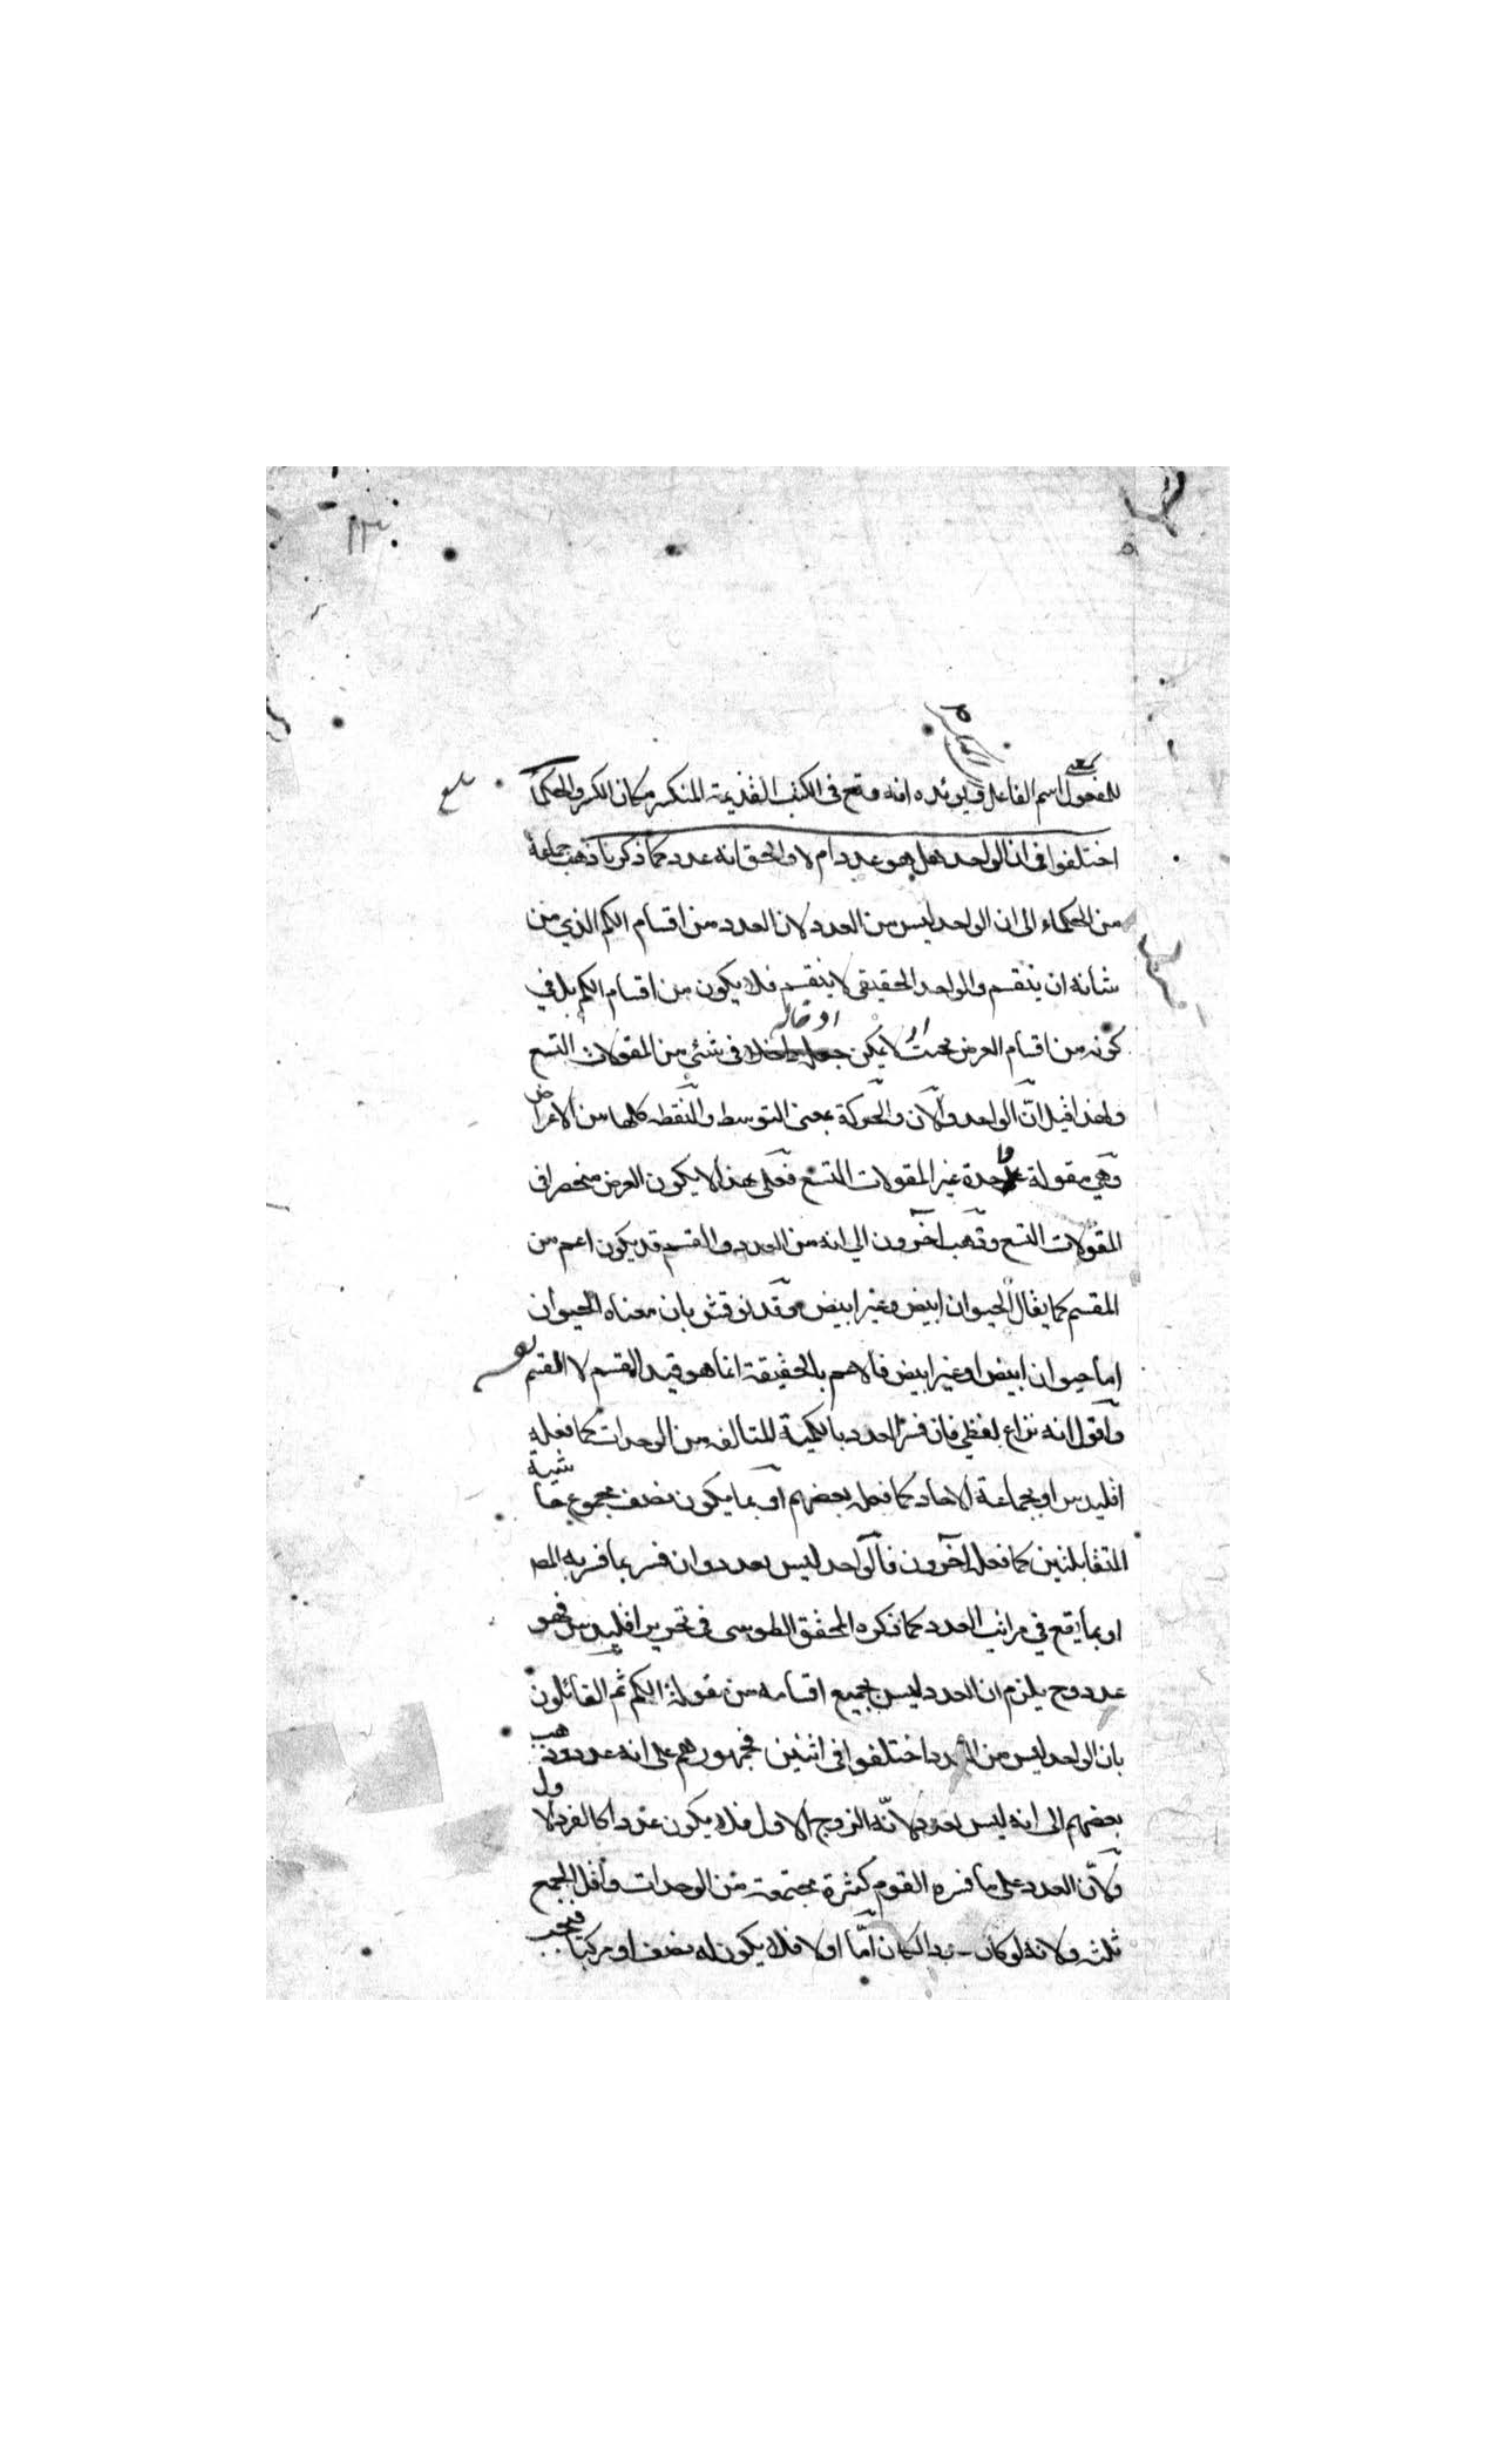 للمفعول اسم الفاعل ويؤيده انه وقع فى الكتب القديمة المنكسر مكان الكسر والحكما
اختلفوا فى ان الواحد هل هو عدد ام لا والحق انه عدد كما ذكرنا ذهب جماعة
من الحكماء الى ان الواحد ليس من العدد لان العدد من اقسام الكم الذي من
شانه ان ينقسم والواحد الحقيقى لا ينقسم فلا يكون من اقسام الكم بل في
كونه من اقسام العرض بحث اذ لا يمكن ادخاله فى شئ من المقولات التسع
ولهذا قيل انّ الواحد والآن والحركة بمعنى التوسط والنقطه كلها من الاعراض
وهي مقولة واحدة غير المقولات التسع فعلى هذا لا يكون العرض منحصرا فى
المقولات التسع وذهب آخرون الى انه من العدد والقسم قد يكون اعم من
المقسم كما يقال الحيوان ابيض وغير ابيض وقد نوقش بان معناه الحيوان
اما حيوان ابيض او غير ابيض فالاعم بالحقيقة انما هو قيد القسم لا القسم
واقول انه نزاع لفظي فان فسر العدد بالكمية المتالفة من الوحدات كما فعله
اقليدس او بجماعة الاحاد كما فعل بعضهم او بما يكون نصف مجموع حاشيته
المتقابلتين كما فعل آخرون فالواحد ليس بعدد وان فسر بما فسر به المص
او بما يقع في مراتب العدد كما ذكره المحقق الطوسى فى تحرير اقليدس فهو
عدد وح يلزم ان العدد ليس بجميع اقسامه من مقولة الكم ثم القائلون
بان الواحد ليس من العدد اختلفوا فى اثنين فجمهورهم على انه عدد وذهب
بعضهم الى انه ليس بعدد لانّه الزوج الاول فلا يكون عددا كالفرد الاول
ولانّ العدد على ما فسره القوم كثرة مجتمعة من الوحدات واقل الجمع
ثلثه ولانه لو كان لكان امّا اولا فلا يكون له نصف او مركبا